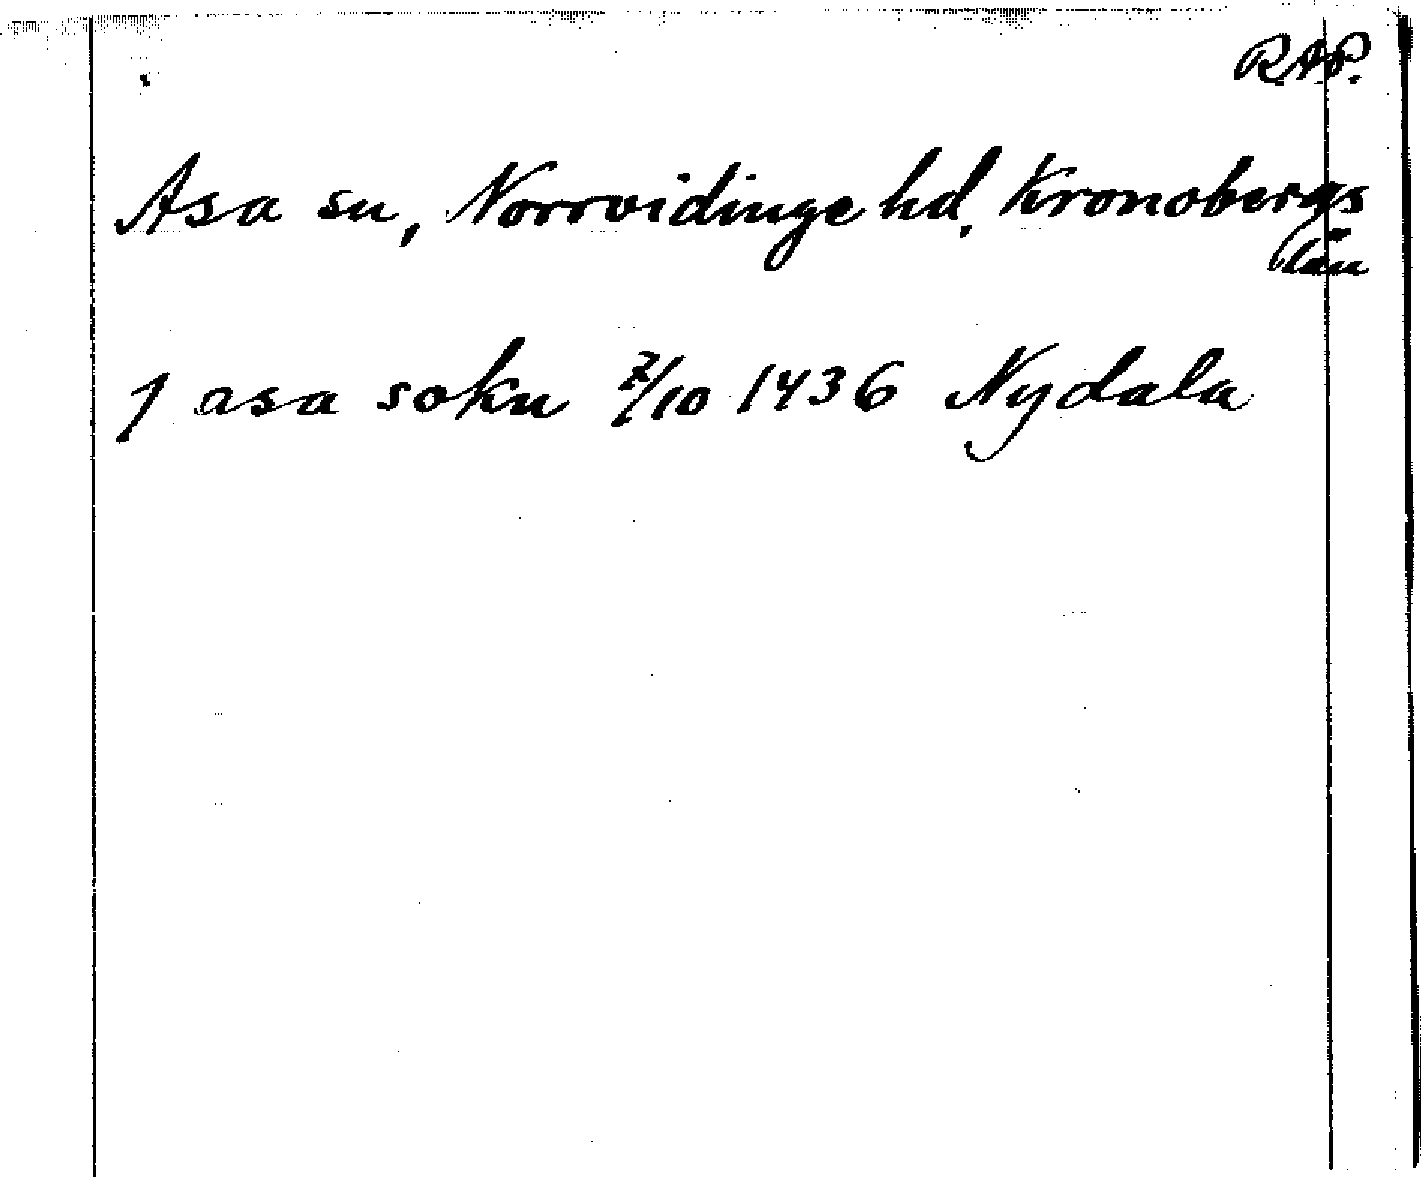 R.A.P.
Asa sn, Norrvidinge hd, Kronobergs
län
J asa sokn 7/10 1436 Nydala